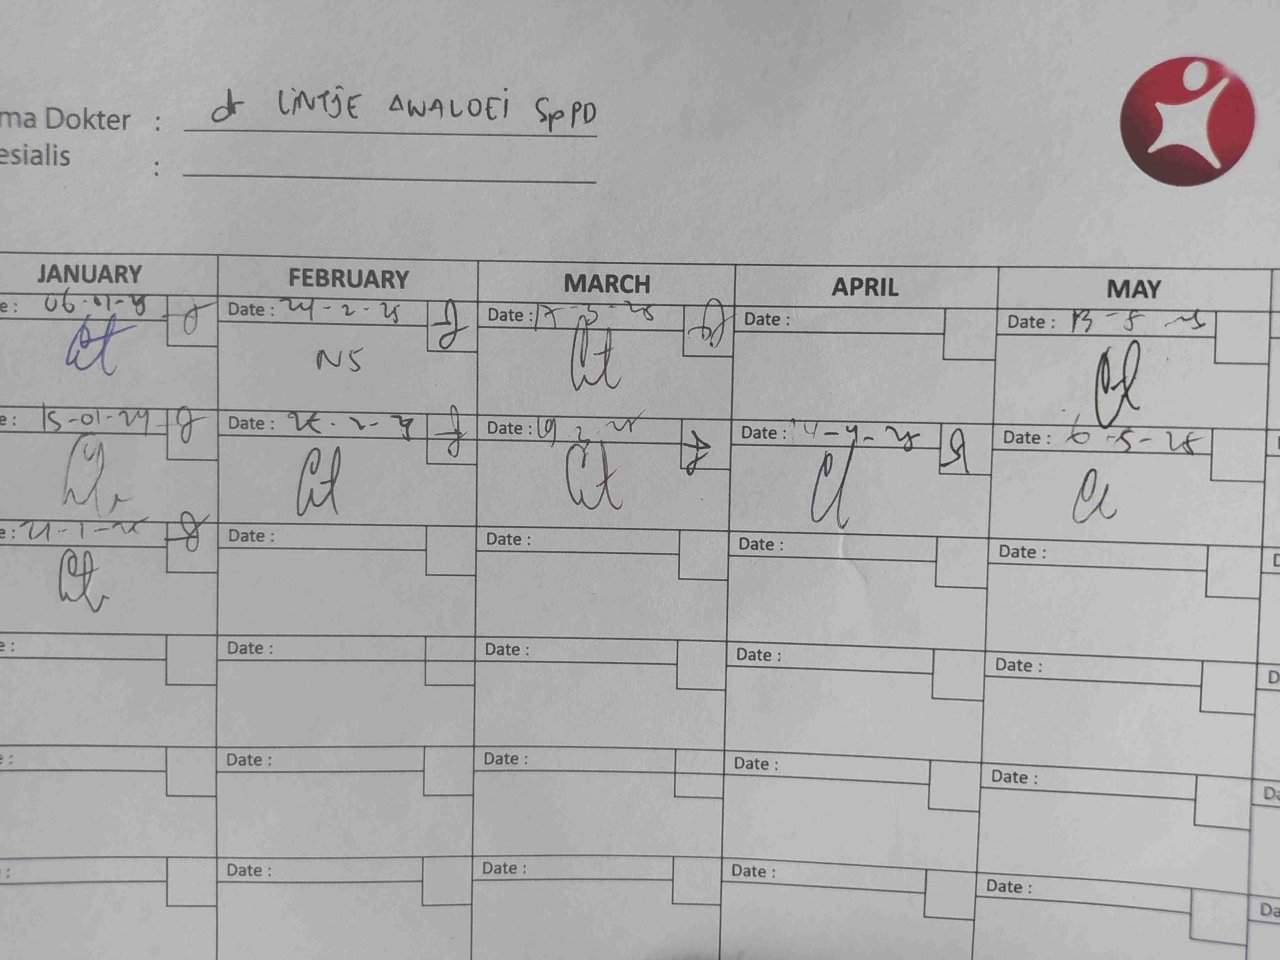 ma Dokter : dr LINTJE AWALOEI SpPD
esialis :
JANUARY FEBRUARY MARCH APRIL MAY
e : 06-01-25 Date : 24-2-25 Date : 17-3-25 Date : Date : 13-5-25
NS
e : 15-01-24 Date : Date : 19 3 25 Date : 14-4-25 Date : 6-5-25
e : 21-1-25 Date : Date : Date : Date : D
e : Date : Date : Date : Date : D
e : Date : Date : Date : Date : Da
: Date : Date : Date : Date : Da